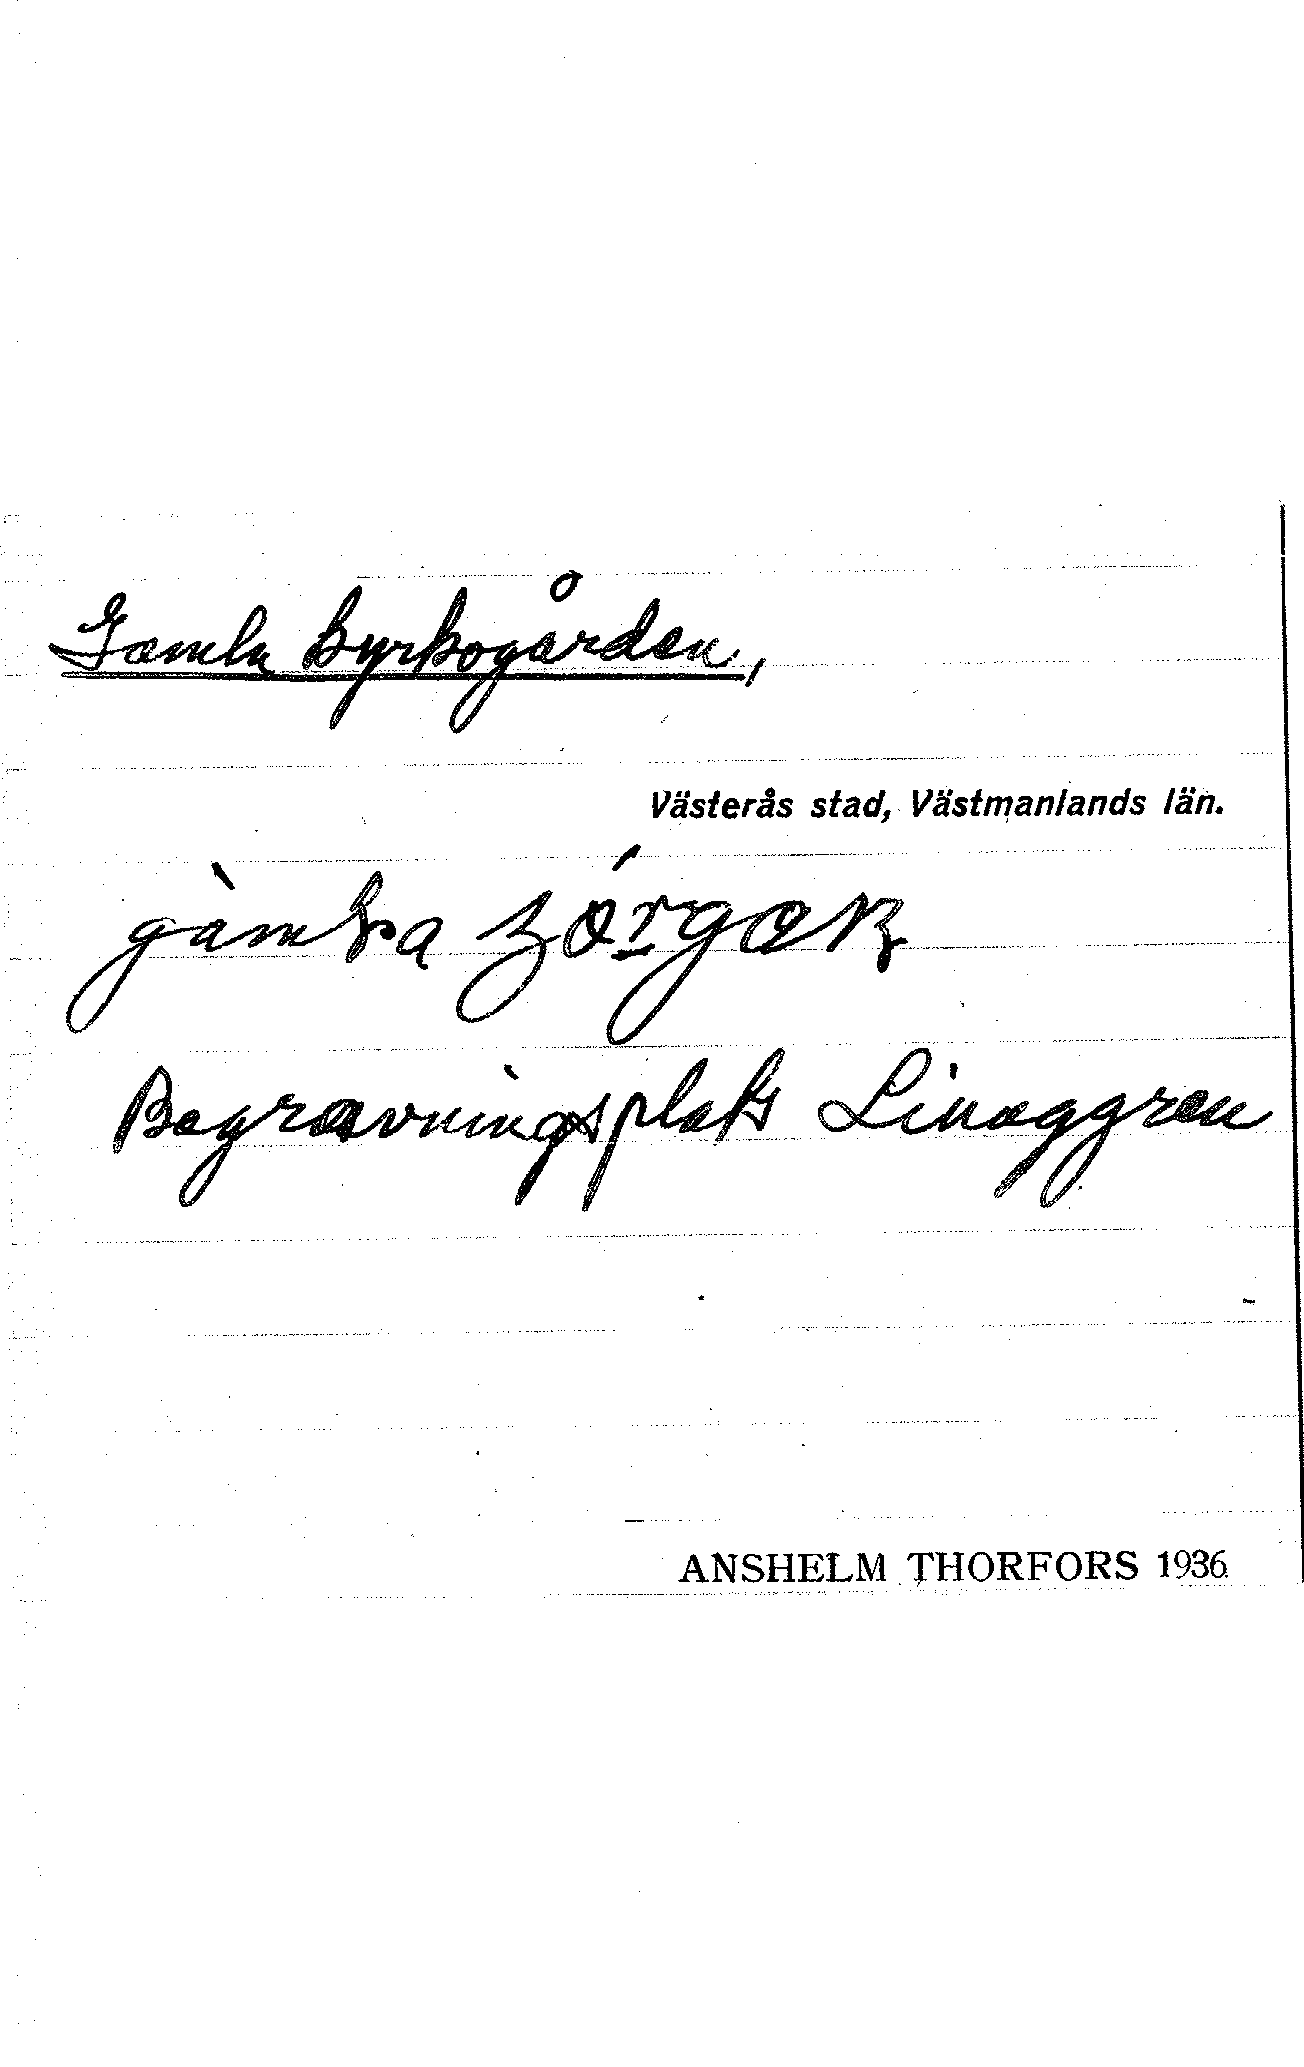 Gamla kyrkogården,
Västerås stad, Västmanlands län.
Begravningsplats Linæggren
ANSHELM THORFORS 1936